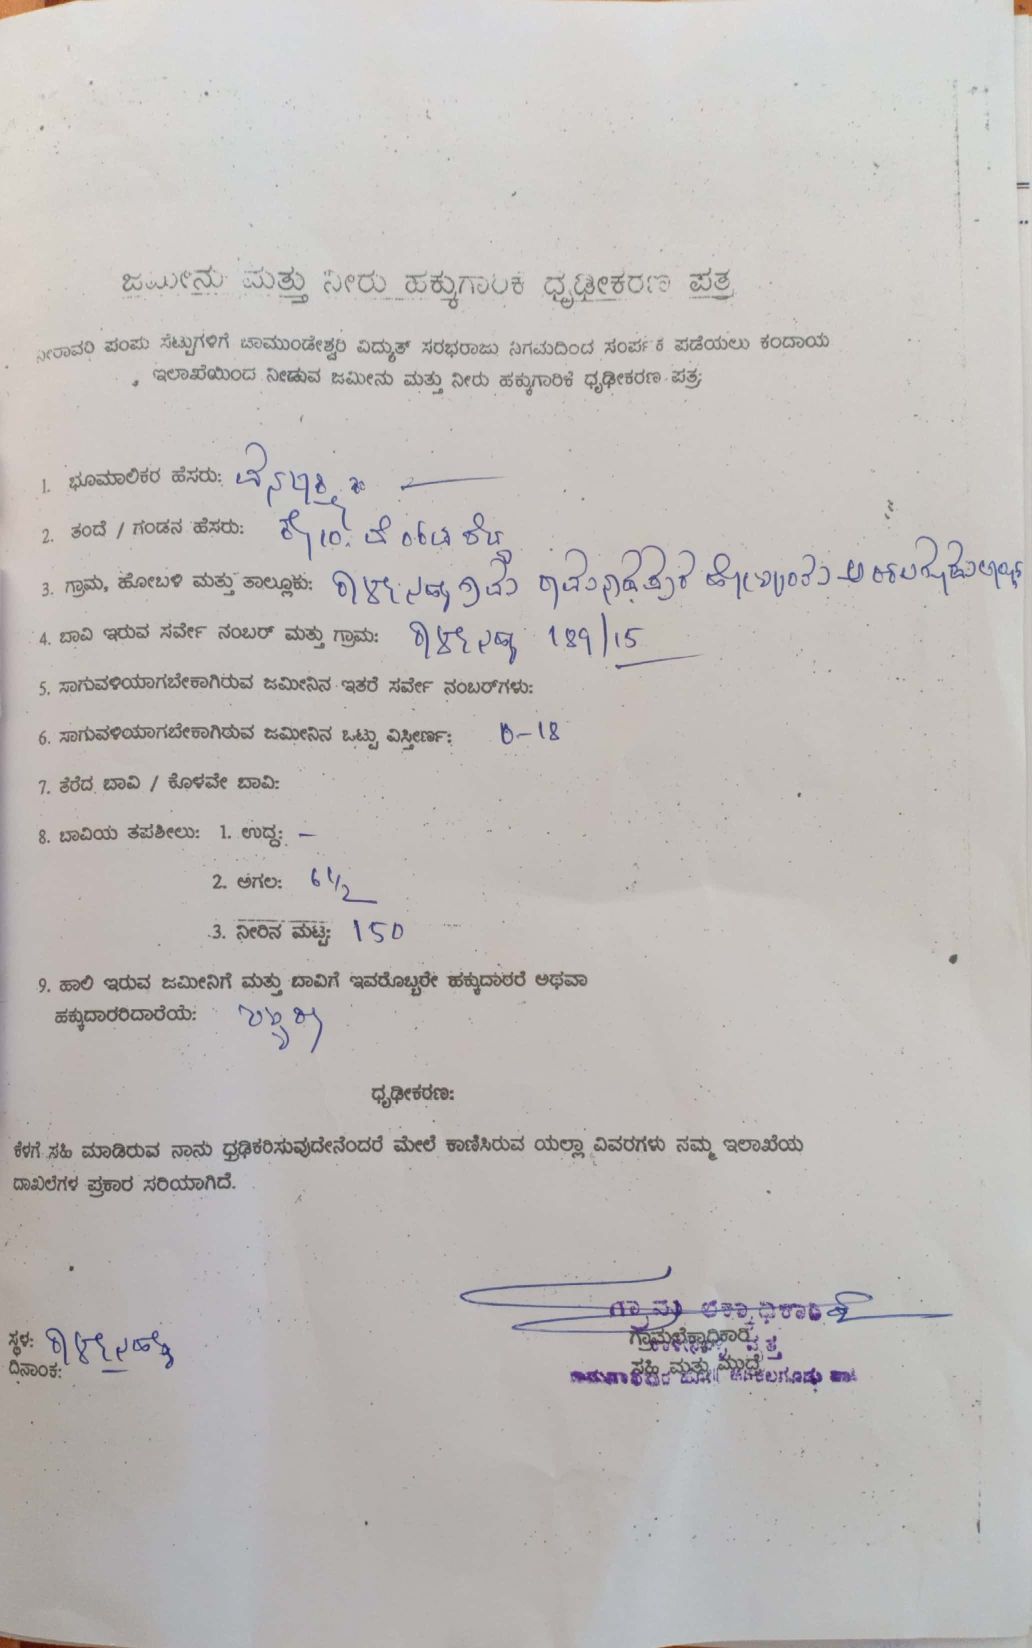 ಜಮೀನು ಮತ್ತು ನೀರು ಹಕ್ಕುಗಾರಿಕೆ ಧೃಢೀಕರಣ ಪತ್ರ
ನೀರಾವರಿ ಪಂಪು ಸೆಟ್ಟುಗಳಿಗೆ ಚಾಮುಂಡೇಶ್ವರಿ ವಿದ್ಯುತ್ ಸರಭರಾಜು ನಿಗಮದಿಂದ ಸಂಪರ್ಕ ಪಡೆಯಲು ಕಂದಾಯ
ಇಲಾಖೆಯಿಂದ ನೀಡುವ ಜಮೀನು ಮತ್ತು ನೀರು ಹಕ್ಕುಗಾರಿಕೆ ಧೃಢೀಕರಣ ಪತ್ರ
1. ಭೂಮಾಲಿಕರ ಹೆಸರು:
2. ತಂದೆ / ಗಂಡನ ಹೆಸರು:
3. ಗ್ರಾಮ, ಹೋಬಳಿ ಮತ್ತು ತಾಲ್ಲೂಕು:
4. ಬಾವಿ ಇರುವ ಸರ್ವೇ ನಂಬರ್ ಮತ್ತು ಗ್ರಾಮ: 189/15
5. ಸಾಗುವಳಿಯಾಗಬೇಕಾಗಿರುವ ಜಮೀನಿನ ಇತರೆ ಸರ್ವೇ ನಂಬರ್‌ಗಳು:
6. ಸಾಗುವಳಿಯಾಗಬೇಕಾಗಿರುವ ಜಮೀನಿನ ಒಟ್ಟು ವಿಸ್ತೀರ್ಣ: 0-18
7. ತೆರೆದ ಬಾವಿ / ಕೊಳವೇ ಬಾವಿ:
8. ಬಾವಿಯ ತಪಶೀಲು: 1. ಉದ್ದ: –
2. ಅಗಲ: 6 1/2
3. ನೀರಿನ ಮಟ್ಟ: 150
9. ಹಾಲಿ ಇರುವ ಜಮೀನಿಗೆ ಮತ್ತು ಬಾವಿಗೆ ಇವರೊಬ್ಬರೇ ಹಕ್ಕುದಾರರೆ ಅಥವಾ
ಹಕ್ಕುದಾರರಿದಾರೆಯೆ:
ಧೃಢೀಕರಣ:
ಕೆಳಗೆ ಸಹಿ ಮಾಡಿರುವ ನಾನು ಧ್ರಢಿಕರಿಸುವುದೇನೆಂದರೆ ಮೇಲೆ ಕಾಣಿಸಿರುವ ಯಲ್ಲಾ ವಿವರಗಳು ನಮ್ಮ ಇಲಾಖೆಯ
ದಾಖಲೆಗಳ ಪ್ರಕಾರ ಸರಿಯಾಗಿದೆ.
ಗ್ರಾಮ ಲೆಕ್ಕಾಧಿಕಾರಿ
ಸ್ಥಳ: ಗ್ರಾಮಲೆಕ್ಕಾಧಿಕಾರಿ
ದಿನಾಂಕ: ಸಹಿ ಮತ್ತು ಮುದ್ರೆ